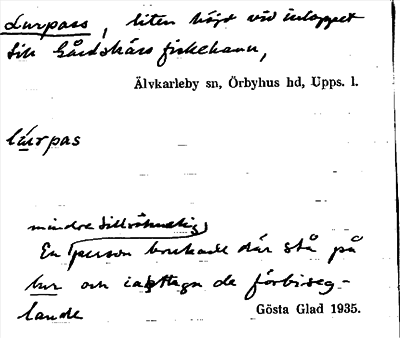 Lurpass, liten höjd vid inloppet
till Gårdskärs fiskehamn,
Älvkarleby sn, Örbyhus hd, Upps. l.
lúrpas
mindre tillräknelig
En person brukade där stå på
lur och iakttaga de förbiseg-
lande
Gösta Glad 1935.